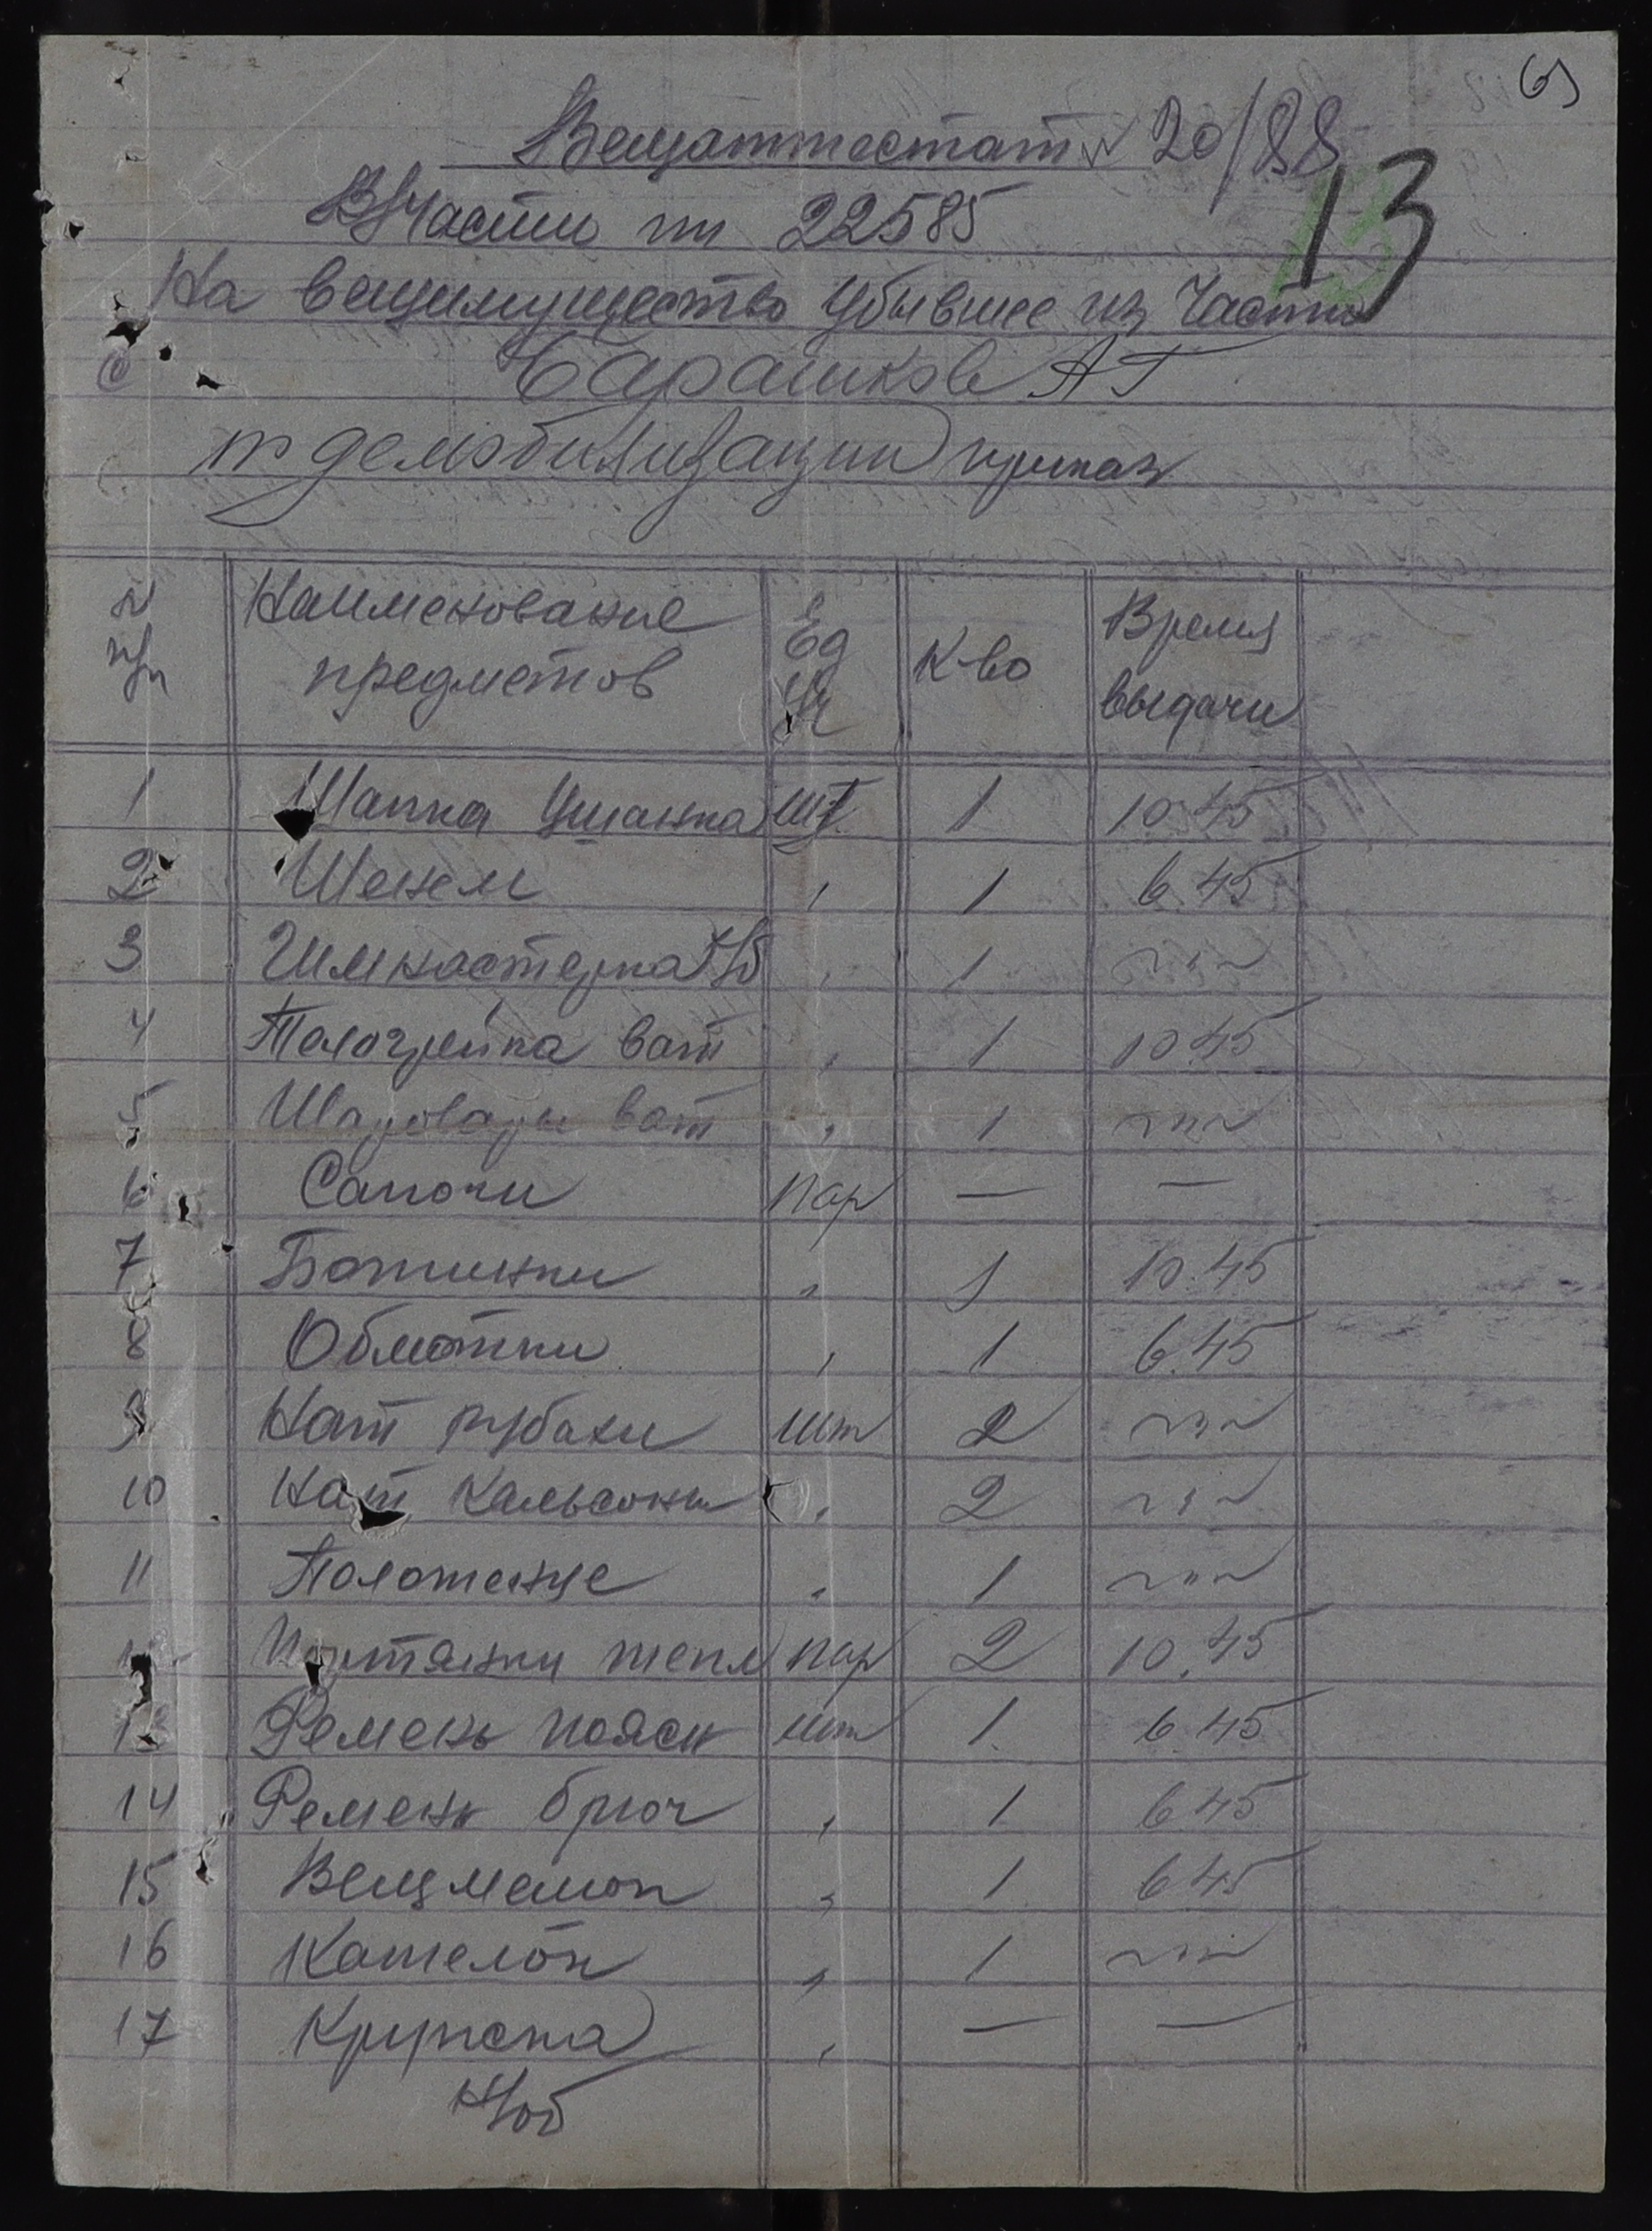 Вещаттестат № 20/88
13
В/части пп 22585
На вещимущество убывшее из части
с Барашков АГ
демобилизации приказ
№ п/п Наименование предметов Ед Уч К-во Время выдачи
1 Шапка Ушанка шт 1 10 45
2 Шенель " 1 6.45
3 Гимнастерка х/б " 1 ~"~
4 Телогрейка ват " 1 10.45
5 Шаровары ват " 1 ~"~
6 Сапоги пар — —
7 Ботинки " 1 10.45
8 Обмотки " 1 6.45
9 Нат рубахи шт 2 ~"~
10 Нат Кальсоны " 2 ~"~
11 Полотенце " 1 ~"~
12 Портянки тепл пар 2 10.45
13 Ремень поясн шт 1 6.45
14 Ремень брюч " 1 6 45
15 Вещмешок " 1 6 45
16 Кателок " 1 ~"~
17 Кружка " — —